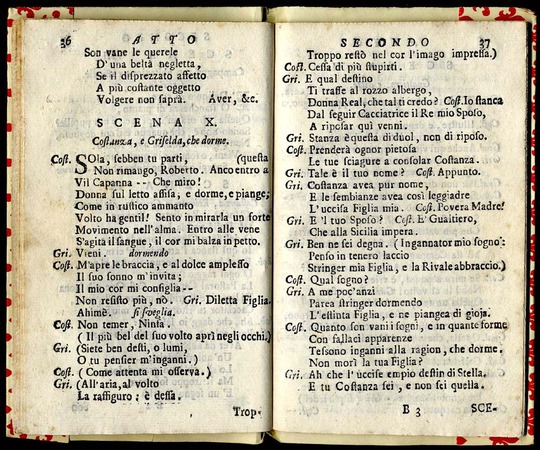 36 ATTO
Son vane le querele
D'una beltà negletta,
Se il disprezzato affetto
A più costante oggetto
Volgere non saprà. Aver, &c.
SCENA X.
Costanza, e Griselda, che dorme.
Cost. SOla, sebben tu parti, (questa
Non rimango, Roberto. Anco entro a
Vil Capanna -- Che miro!
Donna sul letto assisa, e dorme, e piange;
Come in rustico ammanto
Volto ha gentil! Sento in mirarla un forte
Movimento nell'alma. Entro alle vene
S'agita il sangue, il cor mi balza in petto.
Gri. Vieni. dormendo
Cost. M'apre le braccia, e al dolce amplesso
Il suo sonno m'invita;
Il mio cor mi consiglia --
Non resisto più, nò. Gri. Diletta Figlia.
Ahimè. si sveglia.
Cost. Non temer, Ninfa.
( Il più bel del suo volto aprì negli occhi.)
Gri. (Siete ben desti, o lumi,
O tu pensier m'inganni.)
Cost. ( Come attenta mi osserva.)
Gri. (All'aria, al volto
La raffiguro: è dessa.
Trop-
SECONDO 37
Troppo restò nel cor l'imago impressa.)
Cost. Cessa di più stupirti.
Gri. E qual destino
Ti trasse al rozzo albergo,
Donna Real, che tal ti credo? Cost. Io stanca
Dal seguir Cacciatrice il Re mio Sposo,
A riposar quì venni.
Gri. Stanza è questa di duol, non di riposo.
Cost. Prenderà ognor pietosa
Le tue sciagure a consolar Costanza.
Gri. Tale è il tuo nome? Cost. Appunto.
Gri. Costanza avea pur nome,
E le sembianze avea così leggiadre
L'uccisa Figlia mia. Cost. Povera Madre!
Gri. E 'l tuo Sposo? Cost. E' Gualtiero,
Che alla Sicilia impera.
Gri. Ben ne sei degna. (Ingannator mio sogno:
Penso in tenero laccio
Stringer mia Figlia, e la Rivale abbraccio.)
Cost. Qual sogno?
Gri. A me poc'anzi
Parea stringer dormendo
L'estinta Figlia, e ne piangea di gioja.
Cost. Quanto son vani i sogni, e in quante forme
Con fallaci apparenze
Tessono inganni alla ragion, che dorme.
Non morì la tua Figlia?
Gri. Ah che l'uccise empio destin di Stella.
E tu Costanza sei, e non sei quella.
B 3 SCE-